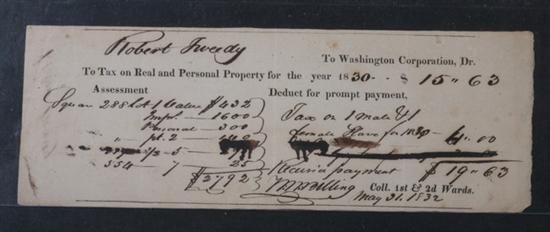 Robert Tweedy
To Washington Corporation, Dr.
To Tax on Real and Personal Property for the year 1830 $ 15"63
Assessment
Deduct for prompt payment,
Square 288 Lot 1 Value $432
Impt. 1600
Personal 300
" pt. 2
Tax on 1 male & 1
female Slave for 1830 4.00
5
554 - 7 - 25
$2792
Received payment $19"63
Coll. 1st & 2d Wards.
May 31. 1832